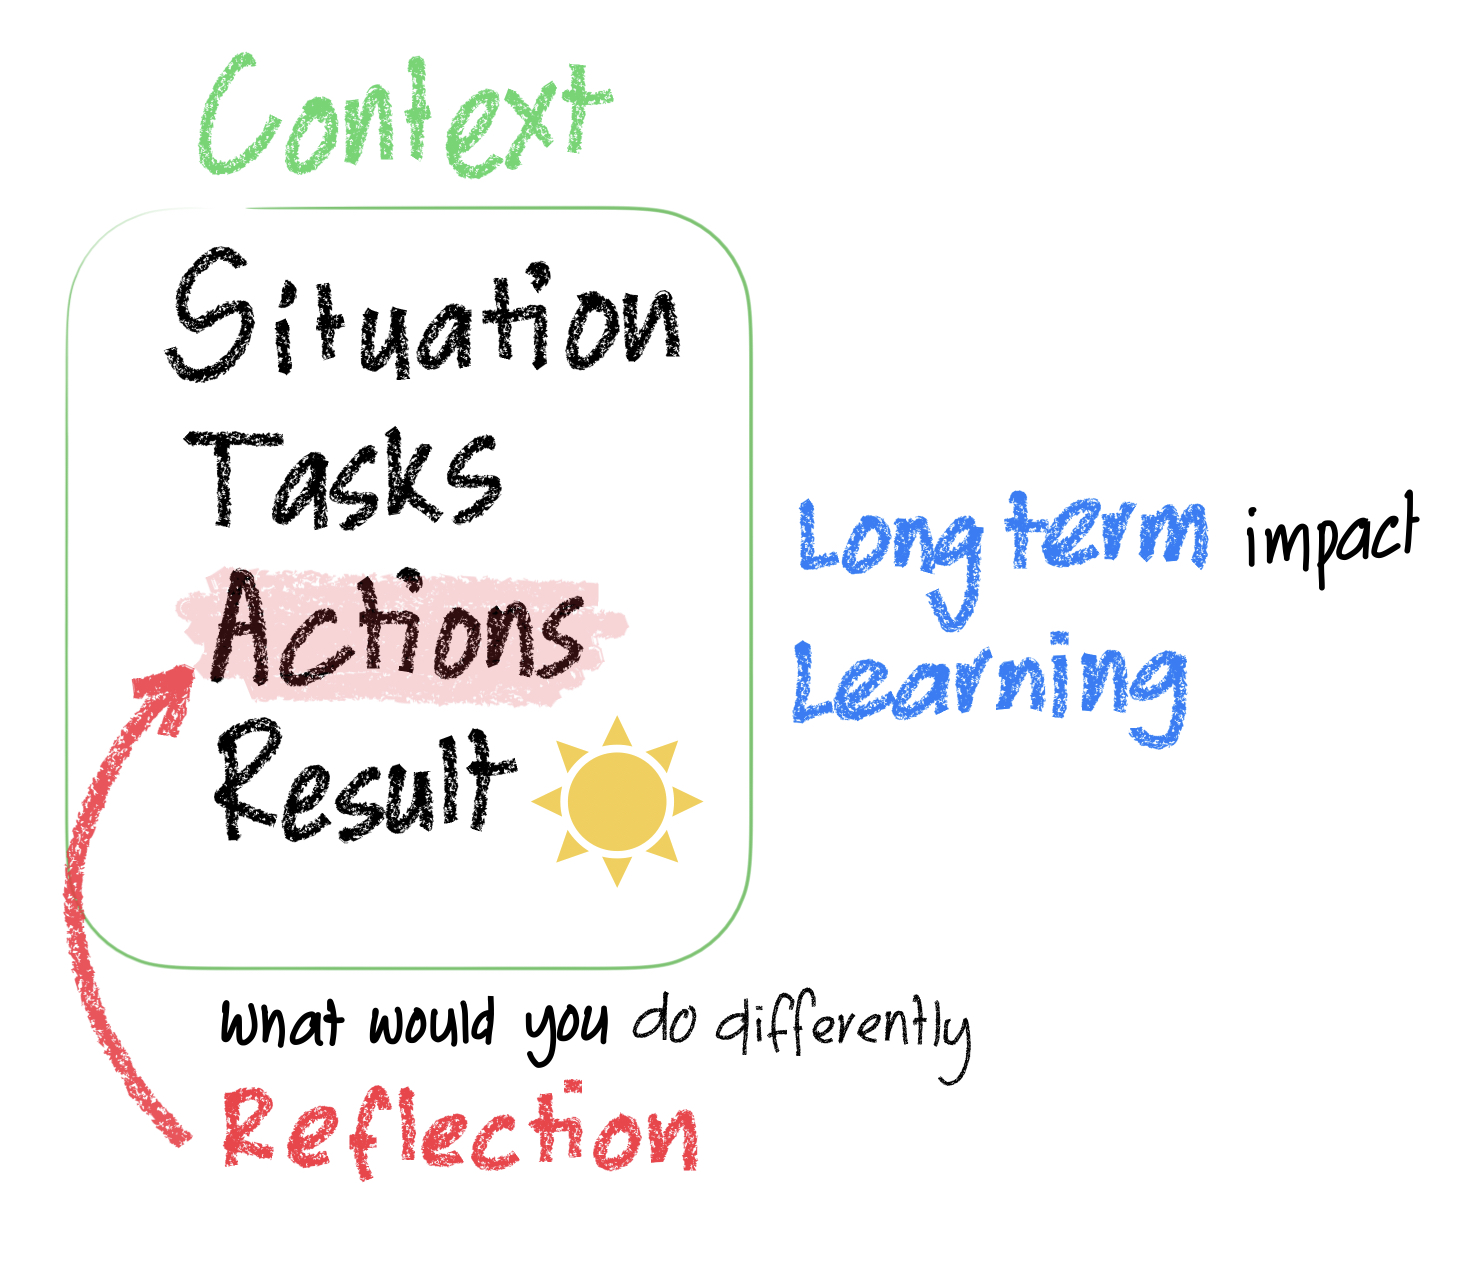 Context
Situation
Tasks
Actions
Result
Long term impact
Learning
what would you do differently
Reflection